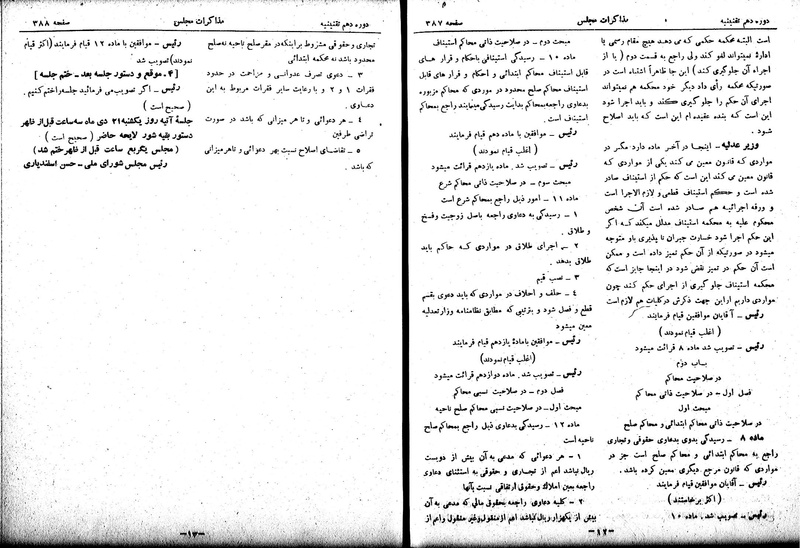 دوره دهم تقنینیه
مذاکرات مجلس
صفحه ۳۸۷
است البته محکمه حکمی که می دهد هیچ مقام رسمی یا
ادارهٔ نمیتواند لغو کند ولی راجع به قسمت دوم ( یا از
اجراء آن جلوگیری کند ) این جا ظاهراً اشتباه است در
صورتیکه محکمه رأی داد دیگر خود محکمه هم نمیتواند
اجرای آن حکم را جلو گیری کند و باید اجرا شود
این است که بنده عقیده ام این است که باید اصلاح
شود .
وزیر عدلیه - اینجا در آخر ماده دارد مگر در
مواردی که قانون معین می کند یکی از مواردی که
قانون معین می کند این است که حکم از استیناف صادر
شده است و حکم استیناف قطعی و لازم الاجرا است
و ورقه اجرائیه هم صادر شده است آن شخص
محکوم علیه به محکمه استیناف مدلل میکند که اگر
این حکم اجرا شود خسارت جبران نا پذیری باو متوجه
میشود در صورتیکه از آن حکم تمیز داده است و ممکن
است آن حکم در تمیز نقض شود در اینجا جایز است که
محکمه استیناف جلو گیری از اجرای حکم کند چون
مواردی داریم از این جهت ذکرش در کلیات هم لازم است
رئیس - آقایان موافقین قیام فرمایند
(اغلب قیام نمودند)
رئیس - تصویب شد ماده ۸ قرائت میشود
باب دوم
در صلاحیت محاکم
فصل اول - در صلاحیت ذاتی محاکم
مبحث اول
در صلاحیت ذاتی محاکم ابتدائی و محاکم صلح
ماده ۸ - رسیدگی بدوی بدعاوی حقوقی و تجاری
راجع به محاکم ابتدائی و محاکم صلح است جز در
مواردی که قانون مرجع دیگری معین کرده باشد .
رئیس - آقایان موافقین قیام فرمایند
(اکثر برخاستند)
رئیس - تصویب شد. ماده ۱۰
مبحث دوم - در صلاحیت ذاتی محاکم استیناف
ماده ۱۰ - رسیدگی استینافی باحکام و قرار های
قابل استیناف محاکم ابتدائی و احکام و قرار های قابل
استیناف محاکم صلح محدود در موردی که محاکم مزبوره
بدعاوی راجعه بمحاکم بدایت رسیدگی مینمایند راجع بمحاکم
استیناف است .
رئیس - موافقین با ماده دهم قیام فرمایند
(اغلب قیام نمودند)
رئیس - تصویب شد. ماده یازدهم قرائت میشود
مبحث سوم - در صلاحیت ذاتی محاکم شرع
ماده ۱۱ - امور ذیل راجع بمحاکم شرع است
۱ - رسیدگی به دعاوی راجعه باصل زوجیت و فسخ
و طلاق .
۲ - اجرای طلاق در مواردی که حاکم باید
طلاق بدهد .
۳ - نصب قیم
۴ - حلف و احلاف در مواردی که باید دعوی بقسم
قطع و فصل شود و بترتیبی که مطابق نظامنامه وزارتعدلیه
معین میشود
رئیس - موافقین با مادهٔ یازدهم قیام فرمایند
(اغلب قیام نمودند)
رئیس - تصویب شد. ماده دوازدهم قرائت میشود
فصل دوم - در صلاحیت نسبی محاکم
مبحث اول - در صلاحیت نسبی محاکم صلح ناحیه
ماده ۱۲ - رسیدگی بدعاوی ذیل راجع بمحاکم صلح
ناحیه است
۱ - هر دعوائی که مدعی به آن بیش از دویست
ریال نباشد اعم از تجاری و حقوقی به استثنای دعاوی
راجعه بعین املاک و حقوق ارتفاقی نسبت بآنها
۲ - کلیه دعاوی راجعه بحقوق مالی که مدعی به آن
بیش از یکهزار ریال نباشد اعم از منقول و غیر منقول و اعم از
- ۱۲ -
دوره دهم تقنینیه
مذاکرات مجلس
صفحه ۳۸۸
تجاری و حقوقی مشروط براینکه در مقر صلح ناحیه نه صلح
محدود باشد نه محکمه ابتدائی
۳ - دعوی تصرف عدوانی و مزاحمت در حدود
فقرات ۱ و ۲ و با رعایت سایر فقرات مربوط به این
دعاوی .
۴ - هر دعوائی و تا هر میزانی که باشد در صورت
تراضی طرفین
۵ - تقاضای اصلاح نسبت بهر دعوائی و تاهر میزانی
که باشد .
رئیس - موافقین با ماده ۱۲ قیام فرمایند (اکثر قیام
نمودند) تصویب شد
[ ۴ - موقع و دستور جلسه بعد - ختم جلسه ]
رئیس - اگر تصویب می فرمائید جلسه را ختم کنیم
( صحیح است )
جلسهٔ آتیه روز یکشنبه ۲۱ دی ماه سه ساعت قبل از ظهر
دستور بقیه شور لایحه حاضر ( صحیح است )
( مجلس یکربع ساعت قبل از ظهر ختم شد )
رئیس مجلس شورای ملی - حسن اسفندیاری
- ۱۳ -